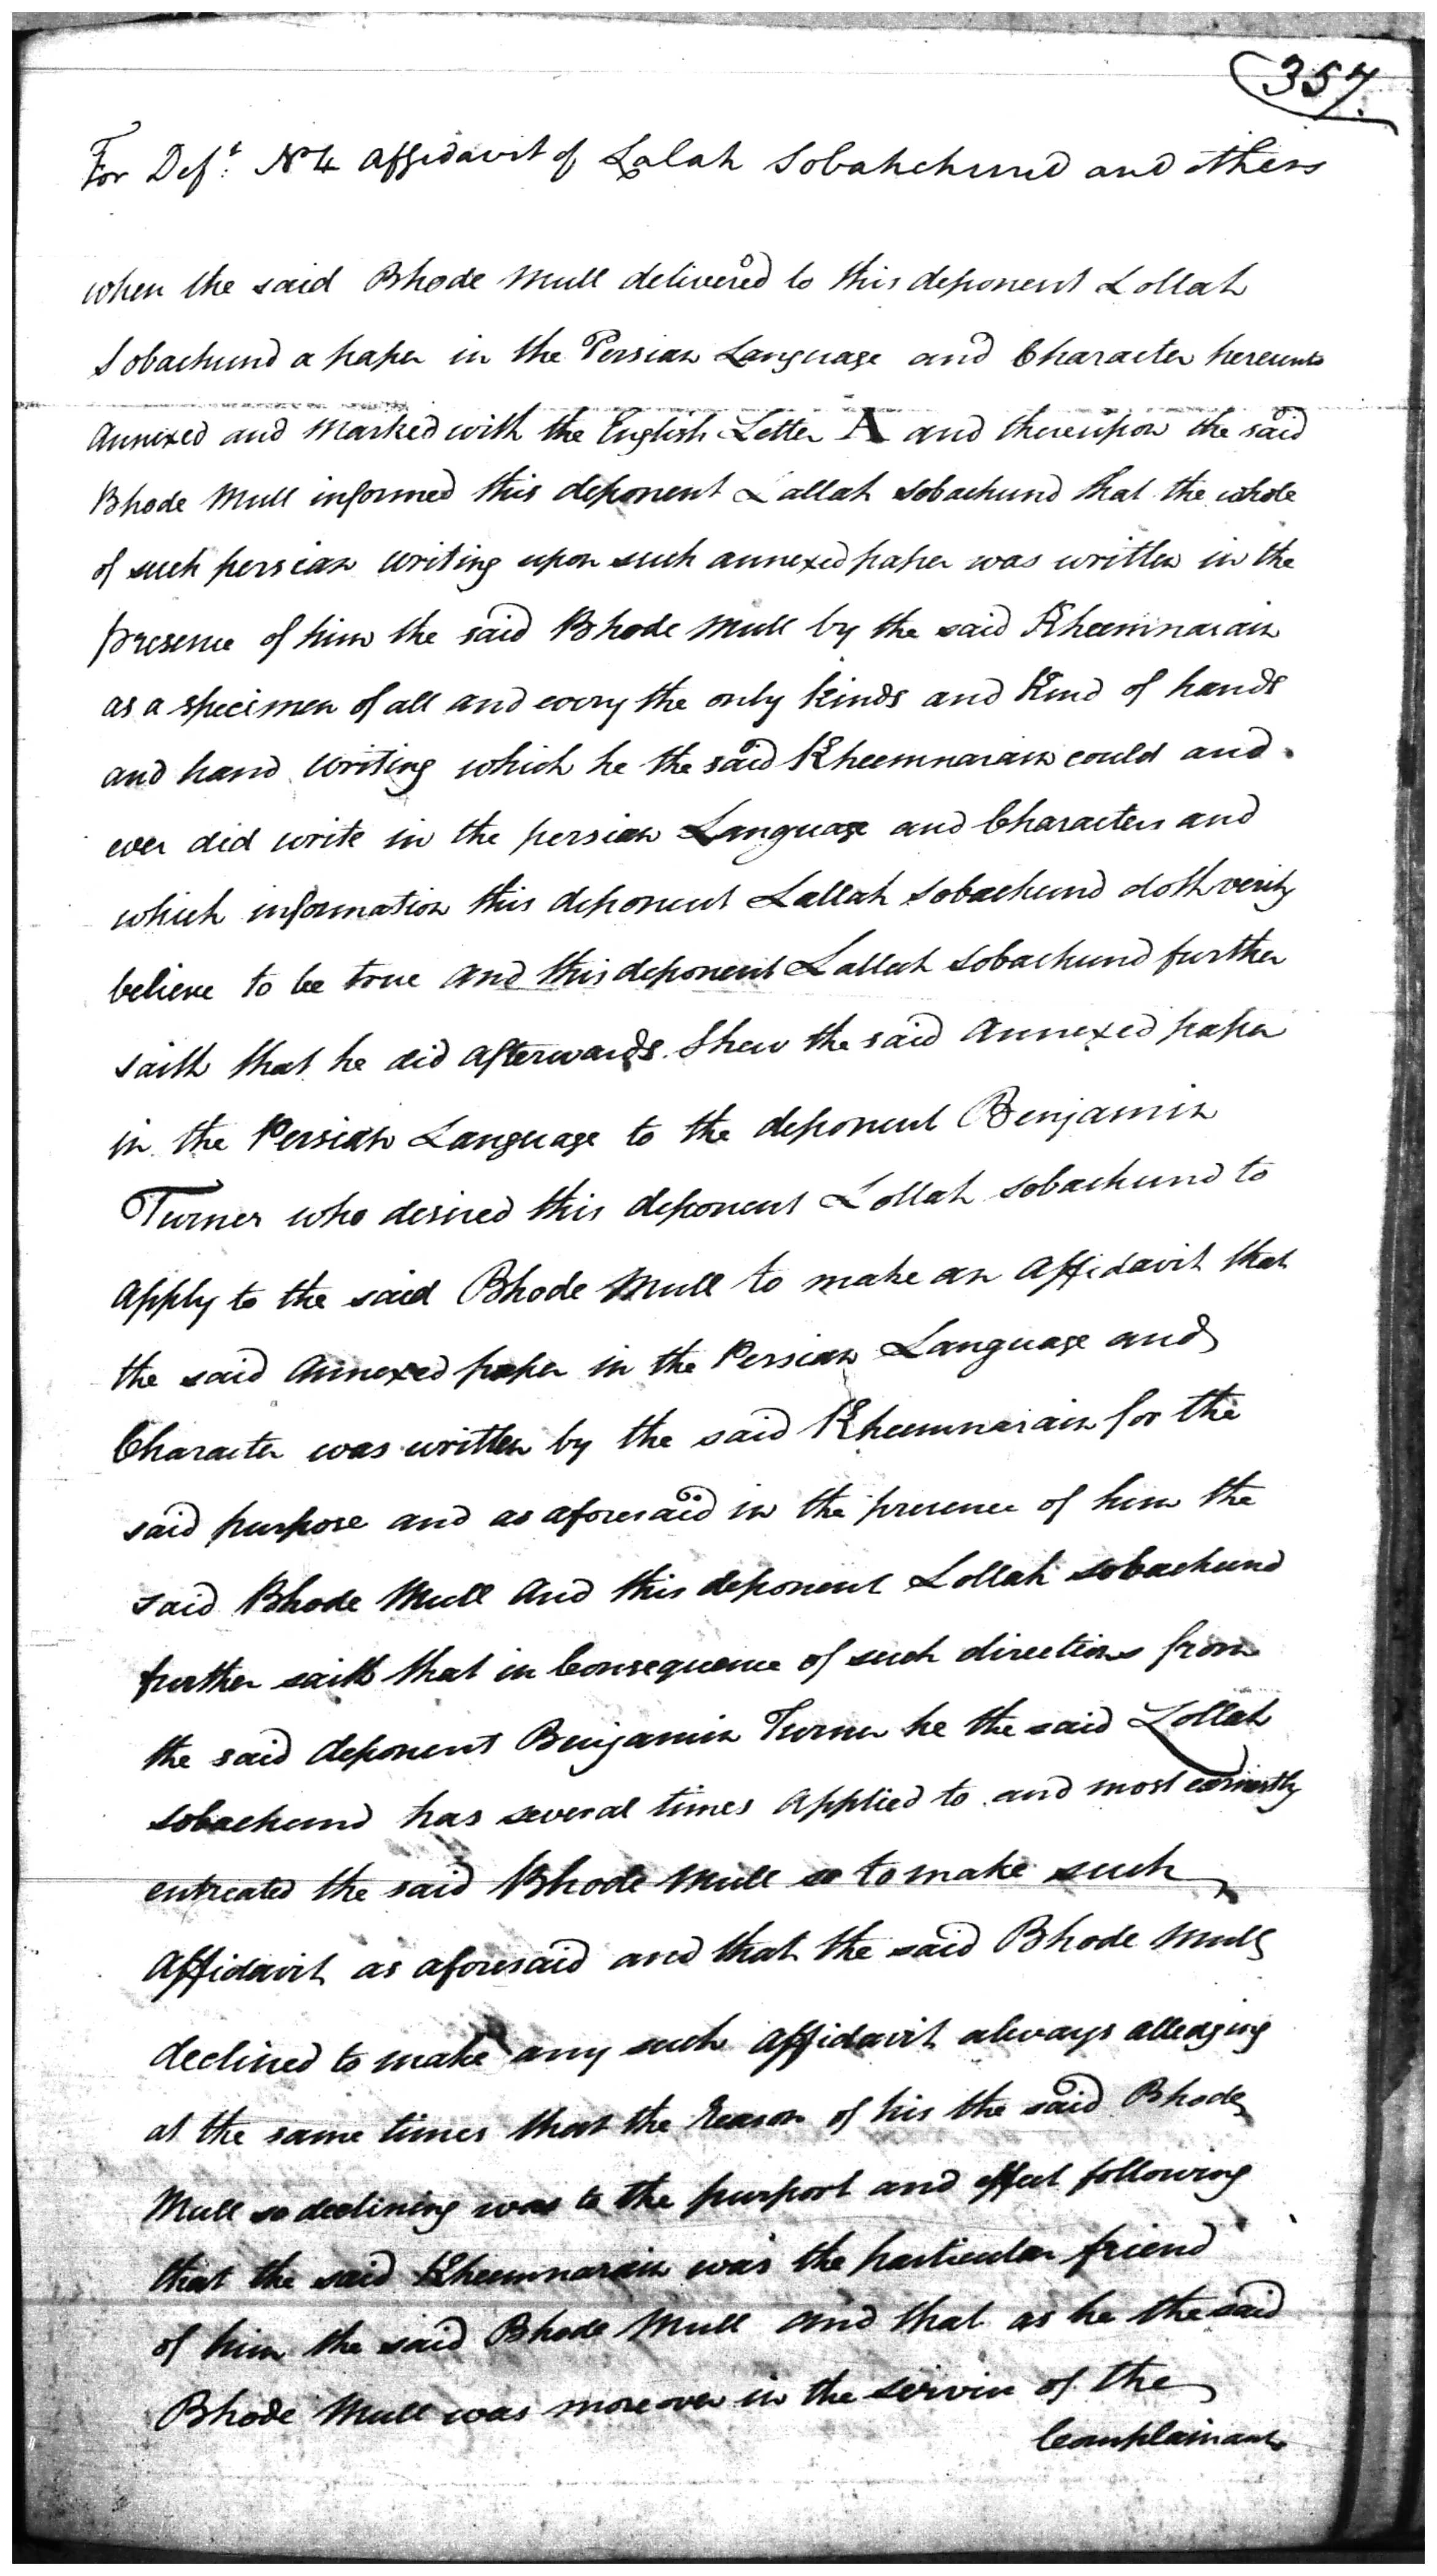 357.
For Def.t No 4 Affidavit of Lalah Sobahchund and others
when the said Bhode Mull delivered to this deponent Lollah
Sobachund a paper in the Persian Language and Character hereunto
Annexed and Marked with the English Letter A and thereupon the said
Bhode Mull informed this deponent Lallah Sobachund that the whole
of such persian Writing upon such annexed paper was written in the
presence of him the said Bhode Mull by the said Kheemnarain
as a specimen of all and every the only kinds and kind of hands
and hand Writing which he the said Kheemnarain could and
ever did write in the persian Language and Character and
which information this deponent Lallah Sobachund doth verily
believe to be true And this deponent Lallah Sobachund further
saith that he did Afterwards Shew the said Annexed paper
in the Persian Language to the deponent Benjamin
Turner who desired this deponent Lollah Sobachund to
Apply to the said Bhode Mull to make an Affidavit that
the said Annexed paper in the Persian Language and
Character was written by the said Kheemnarain for the
said purpose and as aforesaid in the presence of him the
said Bhode Mull And this deponent Lollah Sobachund
further saith that in Consequence of such directions from
the said deponent Benjamin Turner he the said Lollah
Sobachund has several times Applied to and most earnestly
entreated the said Bhode Mull so to make such
Affidavit as aforesaid and that the said Bhode Mull
declined to make any such Affidavit always alledging
at the same times that the Reason of his the said Bhode
Mull so declining was to the purport and effect following
that the said Kheemnarain was the particular friend
of him the said Bhode Mull and that as he the said
Bhode Mull was moreover in the service of the
Complainant